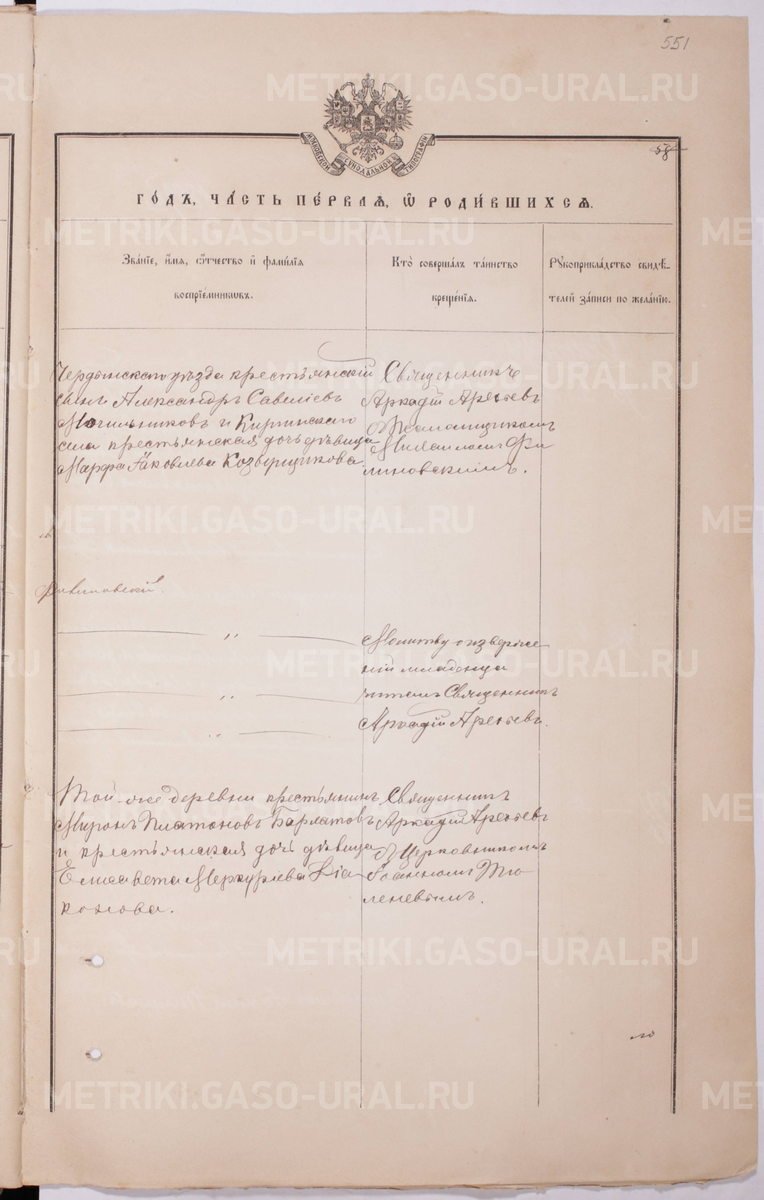 551
58
МОСКОВСКОЙ СѴНОДАЛЬНОЙ ТИПОГРАФІИ
ГОДЪ, ЧАСТЬ ПЕРВАЯ, Ѡ РОДИВШИХСЯ.
Званіе, имя, ѻтчество и фамилія
воспріемниковъ.
Кто совершалъ таинство
крещенія.
Рꙋкоприкладство свидѣ-
телей записи по желанію.
Чердынскаго уѣзда крестьянскій
сынъ Александръ Савеліевъ
Могильниковъ и
села крестьянская дочь дѣвица
Марфа Іаковлева Козырщикова.
Священникъ
Аркадій Арефьевъ
съ Псаломщикомъ
Фи
линовскимъ.
Филиновскій.
"
"
"
Молитву о изверже
ніи младенца
читалъ Священникъ
Аркадій Арефьевъ.
Той-же деревни крестьянинъ
Миронъ Платоновъ
и крестьянская дочь дѣвица
Елисавета Меркурьева Діа
конова.
Священникъ
Аркадій Арефьевъ
съ Церковникомъ
Іоанномъ Тю
леневымъ.
METRIKI.GASO-URAL.RU